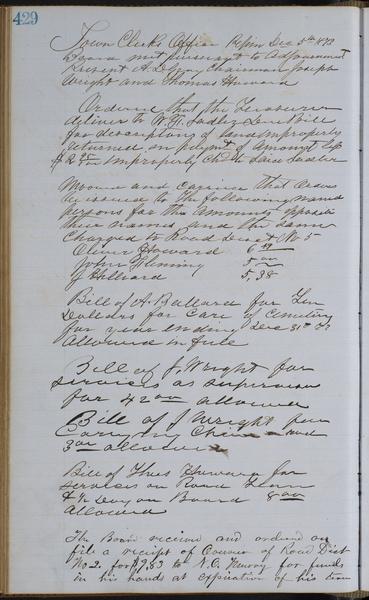 429
Town Clerks Office Dec 5th 1872
Board met pursuant to adjournment
Present A. Chairman Joseph
Wright and Thomas Howard
Ordered that the Treasurer
deliver to W. H. Sadler
for description of land improperly
returned on paymt of amount
$2 improperly Chd to Said Sadler
Moved and Carried that orders
be issued to the following named
persons for the amounts opposite
their names and the same
Charged to Road Dist No 5
Oliver Howard 6
John Fleming 5 00
J Hilliard 5,38
Bill of A. Ballard for Ten
Dollars for Care of Cemetery
for year ending Dec 31st 72
Allowed in full
Bill of J. Wright for
services as supervisor
for 42 00 allowed
Bill of J Wright for
Carrying Chain and
3 00 allowed
Bill of Thos Howard for
services on Road
& ½ Day on Board 8 00
Allowed
The Board received and ordered on
file a receipt of Overseer of Road Dist
No 2. for $9,83 to N. C. for funds
in his hands at expiration of his term